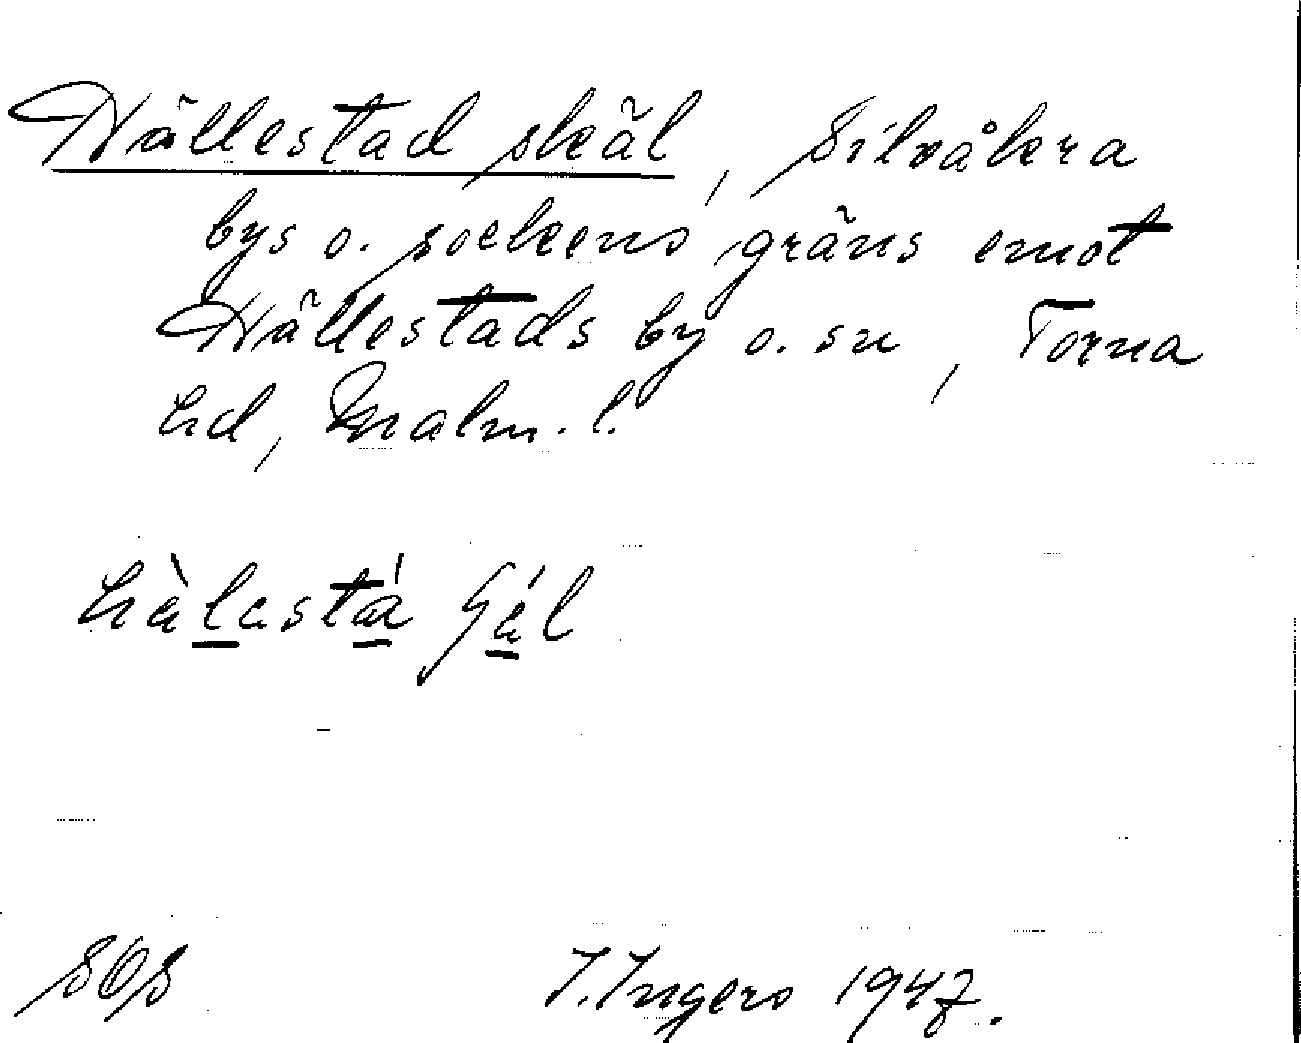 Hällestad skäl, Silvåkra
bys o. sockens gräns emot
Hällestads by o. sn, Torna
hd, Malm. l.
SOS
I. Ingers 1947.